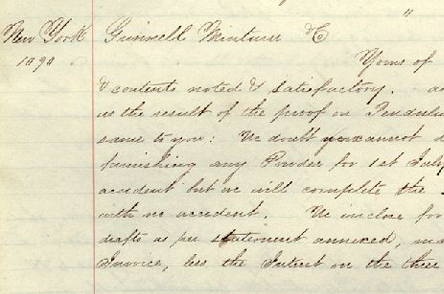 "
New York Grinnell Minturn & C
1090 Yours of
& contents noted & satisfactory.
us the result of the proof on Pendulu
same to you: We doubt cannot
furnishing any Powder for 1st July
accident but we will complete the
with no accident. We inclose for
drafts as per statement annexed,
Invoice, less the Interest on the three